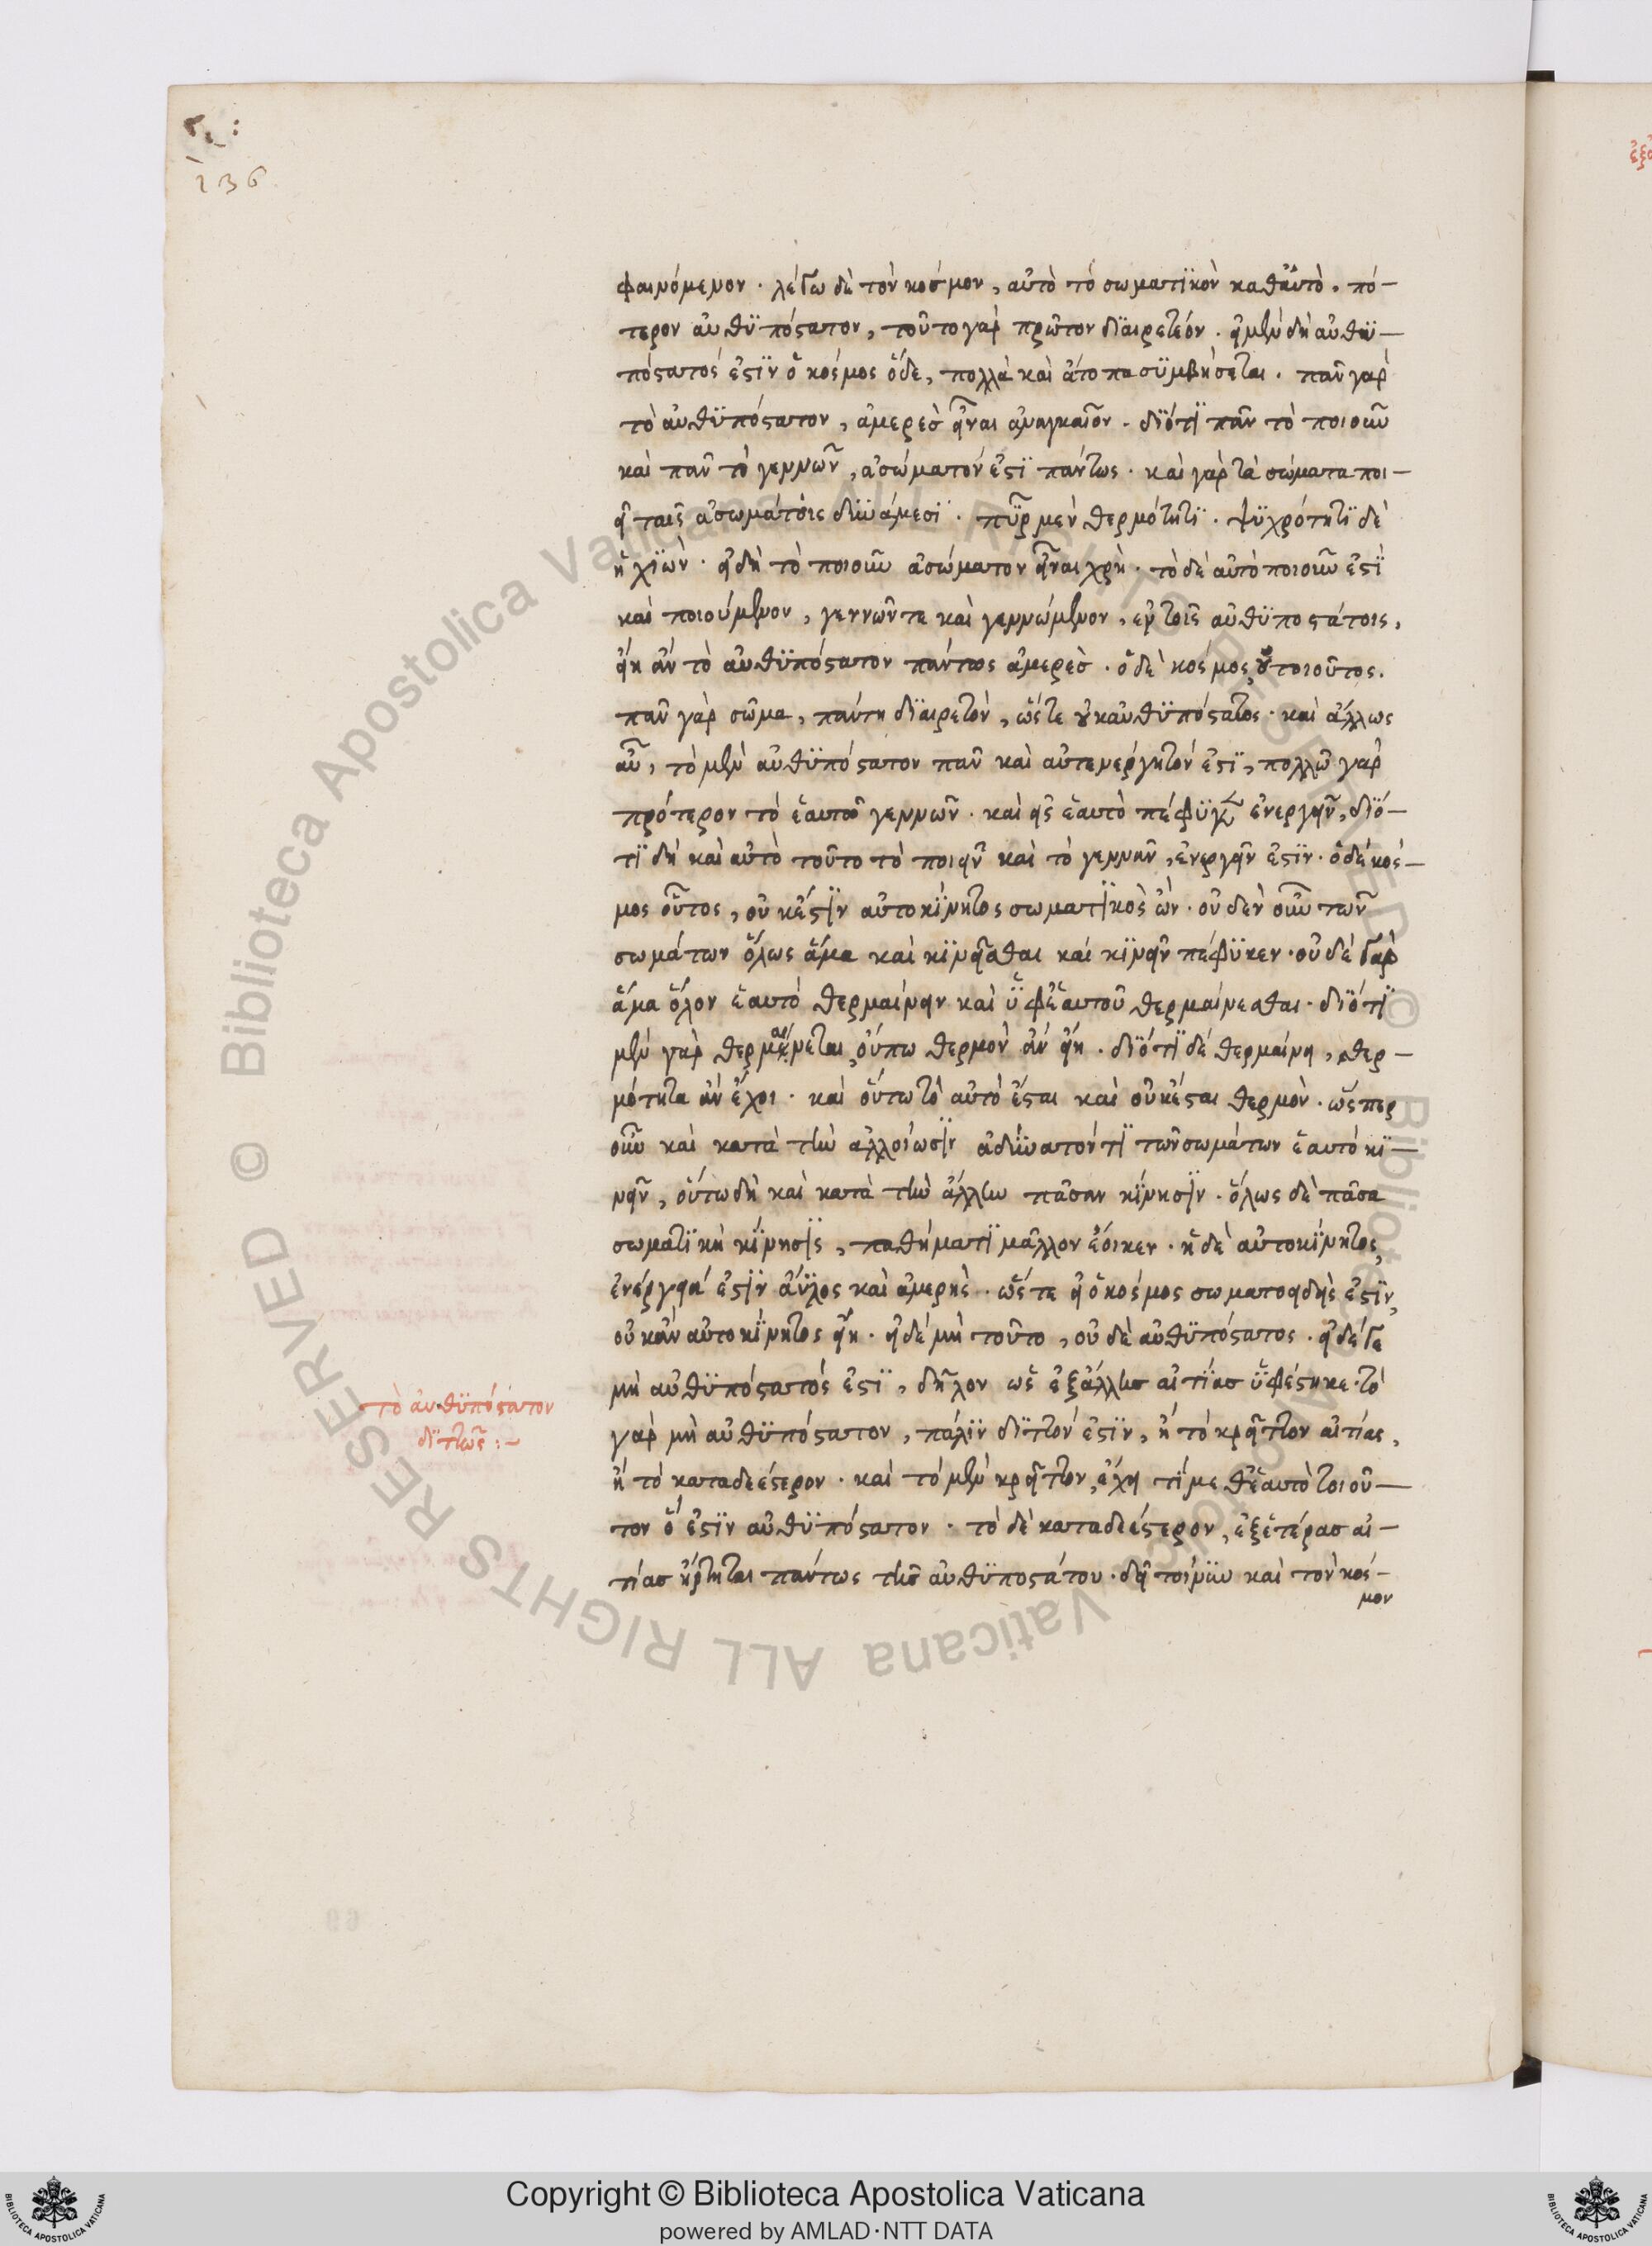 136
φαινόμενον · λέγω δὲ τὸν κόσμον, αὐτὸ τὸ σωματϊκὸν καθ' αὑτὸ, πό-
τερον αὐθϋπόστατον, τοῦτο γὰρ πρῶτον διαιρετέόν · εἰ μὲν δὴ αὐθϋ-
πόστατός ἐστϊν ὁ κόσμος ὅδε, πολλὰ καὶ ἄτοπα σϋμβήσεται · πᾶν γὰρ
τὸ αὐθϋπόστατον, ἀμερὲσ εἶναι ἀναγκαῖον · διότϊ πᾶν τὸ ποιοῦν
καὶ πᾶν τὸ γεννῶν, ἀσώματόν ἐστϊ πάντως · καὶ γὰρ τὰ σώματα ποι-
εῖ ταῖς ἀσωμάτοις δυνάμεσϊ · πῦρ μὲν θερμότητϊ · ψϋχρότητϊ δὲ
ἡ χϊών · εἰ δὴ τὸ ποιοῦν ἀσώματον εἶναι χρὴ · τὸ δὲ αὐτὸ ποιοῦν ἐστϊ
καὶ ποιούμενον, γεννῶν τε καὶ γεννώμενον, ἐν τοῖς αὐθϋποστάτοις,
εἴη ἂν τὸ αὐθϋπόστατον πάντως ἀμερὲσ · ὁ δὲ κόσμος, οὐ τοιοῦτος.
πᾶν γὰρ σῶμα, πάντη διαιρετὸν, ὥστε οὐκ αὐθϋπόστατος · καὶ ἄλλως
αὖ, τὸ μὲν αὐθϋπόστατον πᾶν καὶ αὐτενέργητόν ἐστϊ, πολλῶ γὰρ
πρότερον τὸ ἑαυτὸ γεννῶν · καὶ εἰς ἑαυτὸ πέφϋκεν ἐνεργεῖν, διό-
τϊ δὴ καὶ αὐτὸ τοῦτο τὸ ποιεῖν καὶ τὸ γεννᾶν, ἐνεργεῖν ἐστϊν · ὁ δὲ κόσ-
μος οὗτος, οὐκ ἔστϊν αὐτοκίνητος σωματϊκὸς ὢν · οὐδὲν οὖν τῶν
σωμάτων ὅλως ἅμα καὶ κινεῖσθαι καὶ κινεῖν πέφϋκεν · οὐδὲ γὰρ
ἅμα ὅλον ἑαυτὸ θερμαίνειν καὶ ὑφ' ἑαυτοῦ θερμαίνεσθαι · διότϊ
μὲν γὰρ θερμαίνεται, οὔπω θερμὸν ἂν εἴη · διότϊ δὲ θερμαίνει, θερ-
μότητα ἂν ἔχοι · καὶ οὕτω τὸ αὐτὸ ἔσται καὶ οὐκ ἔσται θερμὸν · ὥσπερ
οὖν καὶ κατὰ τὴν ἀλλοίωσϊν ἀδύνατόν τϊ τῶν σωμάτων ἑαυτὸ κϊ-
νεῖν, οὕτω δὴ καὶ κατὰ τὴν ἄλλην πᾶσαν κίνησϊν · ὅλως δὲ πᾶσα
σωματϊκὴ κίνησϊς, παθήματϊ μᾶλλον ἔοικεν · ἡ δὲ αὐτοκίνητος,
ἐνέργειά ἐστϊν ἄϋλος καὶ ἀμερὴς · ὥστε εἰ ὁ κόσμος σωματοειδής ἐστϊν,
οὐκ ἂν αὐτοκίνητος εἴη · εἰ δὲ μὴ τοῦτο, οὐδὲ αὐθϋπόστατος · εἰ δέ γε
μὴ αὐθϋπόστατός ἐστϊ, δῆλον ὡς ἐξ ἄλλησ αἰτίασ ὑφέστηκε · τὸ
γὰρ μὴ αὐθϋπόστατον, πάλϊν διττόν ἐστϊν, ἢ τὸ κρεῖττον αἰτίας,
ἢ τὸ καταδεέστερον · καὶ τὸ μὲν κρεῖττον, ἔχει τϊ μεθ' ἑαυτὸ τοιοῦ-
τον ὅ ἐστϊν αὐθϋπόστατον · τὸ δὲ καταδεέστερον, ἐξ ἑτέρασ αἰ-
τίασ ἤρτηται πάντως τῆσ αὐθϋποστάτου · δεῖ τοίνϋν καὶ τὸν κόσ-
μον
τὸ αὐθϋπόστατον
διττῶς :-
Copyright © Biblioteca Apostolica Vaticana
powered by AMLAD·NTT DATA
© Biblioteca Apostolica Vaticana ALL RIGHTS RESERVED © Biblioteca Apostolica Vaticana ALL RIGHTS RESERVED